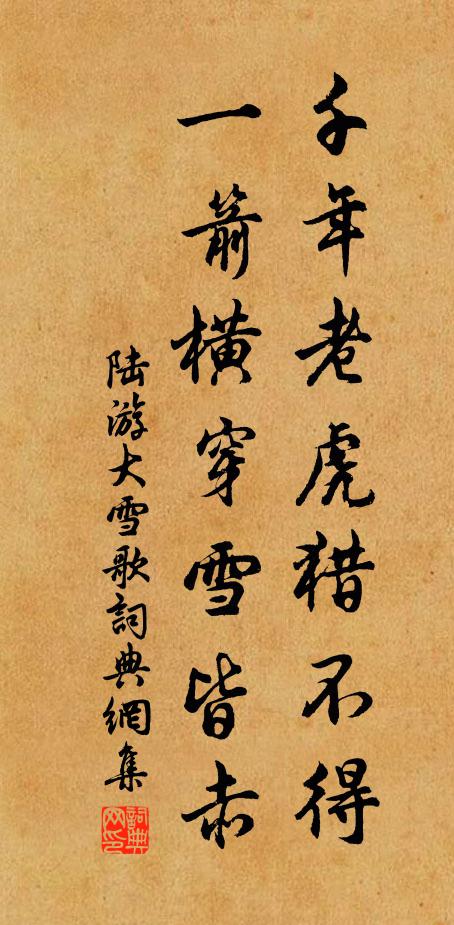 千年老虎猎不得
一箭横穿雪皆赤
陆游大雪歌詞典網集
詞典网印